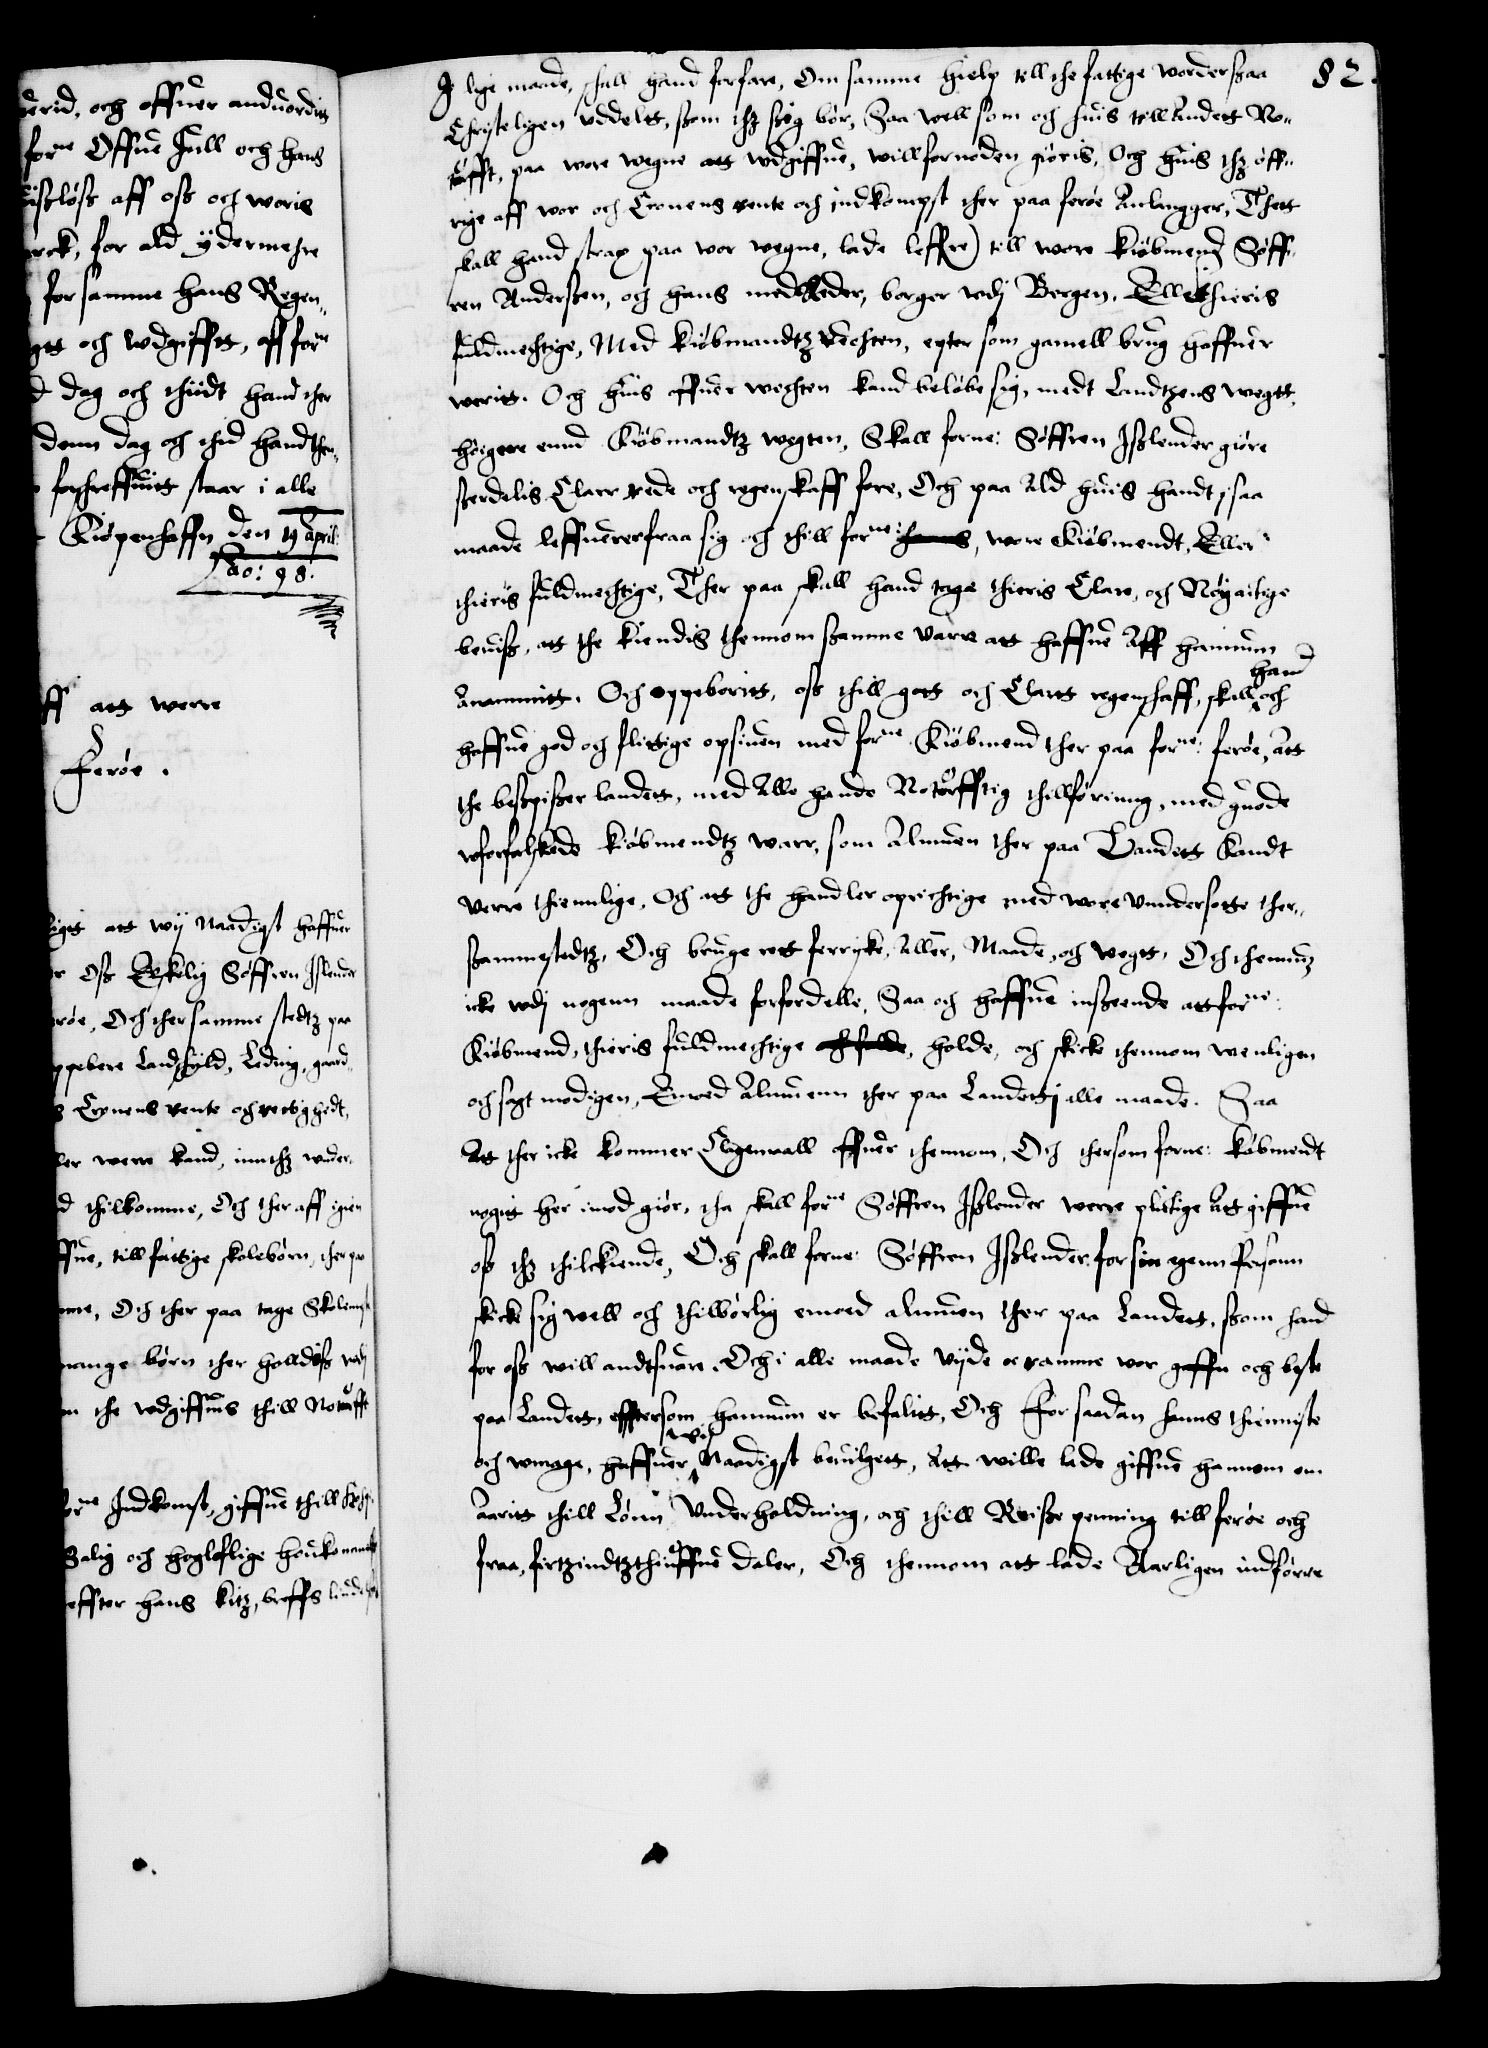 erid, och offuer anduordit
forne Offue Jull och hans
sløss aff oss och woris
rck, for ald ydermehre
for samme hans Regen-
gtt och wdgifftt, aff forne
dag och thiidt hand ther
denn dag och thid hand ther
forschreffuitt staar i alle
Kiøpenhaffn den 19 April:
Ao: 98.
ff att werre
Ferøe.
ligtt att wij Naadigst haffuer
r Oss Elskelig Søffren Islender
røe, Och ther samme stedtz paa
ppebere Landschyld, Leding, gaard
s Cronens rente och rettighedt,
ler were kand, inthz under
d thilkomme, Och ther aff igien
ffue, till fattige skolebørn, ther paa
me, Och ther paa tage Skolemest
mange børn ther holldiss wdj
m the wdgiffuis thill Notørfft
forne Indkomst, giffue thill
Salig och høgloflige
effter hans Kitz, breffs
82.
I lige maade, skall hand forfare, Om samme hielp till the fattige worder ssaa
Christeligen Uddeltt, ssom thz ssig bør, Saa well som och huis till Andett No-
tøfft, paa wore wegne att wdgiffue, will fornøden giøris, Och huis thz øff-
rige aff wor och Cronens rente och indkompst ther paa ferøe Anlangger, Thett
skall hand strax paa wor wegne, lade leffre) till wore Kiøbmend Søff-
ren Anderssen, och hans medReder, borger wdj Bergen, Eller thieris
fuldmechtige, Med Kiøbmandtz wechten, epter som gamell brug haffuer
weritt. Och huis offuer wechten kand beløbe sig, medt Landtzens wegtt,
høigere ennd Kiøbmandtz wegten, Skall forne: Søffren Isslender giøre
sserdelis Clarr rede och regenskaff fore, Och paa Ald huis handt i saa
maade leffuerer fraa sig och thill forne: wore Kiøbmendt, Eller
thieris fuldmechtige, Ther paa skall hand tage thieris Clare, och Nøyactige
beuiss, att the kiendis thennom ssamme varre att haffue Aff hannum
Anammitt. Och oppeboritt, oss thill gott och Clartt regenschaff, skall hand och
haffue god och flittige opsiuen med forne Kiøbmend ther paa forne: ferøe, Att
the besspisser landett, med Alle hande Notørfftig thillføring, med guode
wforfalskede kiøbmendtz warr, som Almuen ther paa Landett Kandt
verre thiennlige, Och att the handler oprichtige med wore Unndersotte ther-
ssammestedtz, Och bruge rett ferrske, Allen, Maade, och wegtt, Och thennum
icke wdj nogenn maade forfordelle, Saa och haffue insseende att forne:
Kiøbmend, thieris fuldmechtige, holde, och skicke thennom wenligen
och sagtmodigen, Emod Almuenn ther paa Landett j alle maade. Saa
Att ther icke kommer Clagemaall offuer thennom, Och thersom forne: købmendt
nogitt her imod giør, tha skall forne Søffren Isslender werre plictige Att giffue
oss thz thilckiende, Och skall forne: Søffren Isslender for sin egenn Persoun
skicke sig well och thilbørlig emoed almuen ther paa Landett, ssom hand
for oss will andtsuare. Och i alle maade vyde oc ramme vor gaffn och beste
paa Landett, effttersom hannum er befalitt, Och for saadan hanns thienniste
och wmage, haffuer wij Naadigst beuilgett, Att wille lade giffue hannom om
Aaritt thill Lønn Underholdning, och thill Reisse penning till ferøe och
fraa, firtzindtzthiuffue daler, Och thennom att lade Aarligen indførre